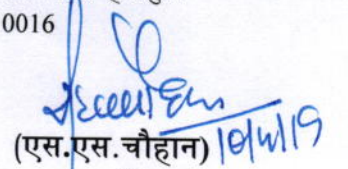 0016
(एस.एस.चौहान) 10/4/19